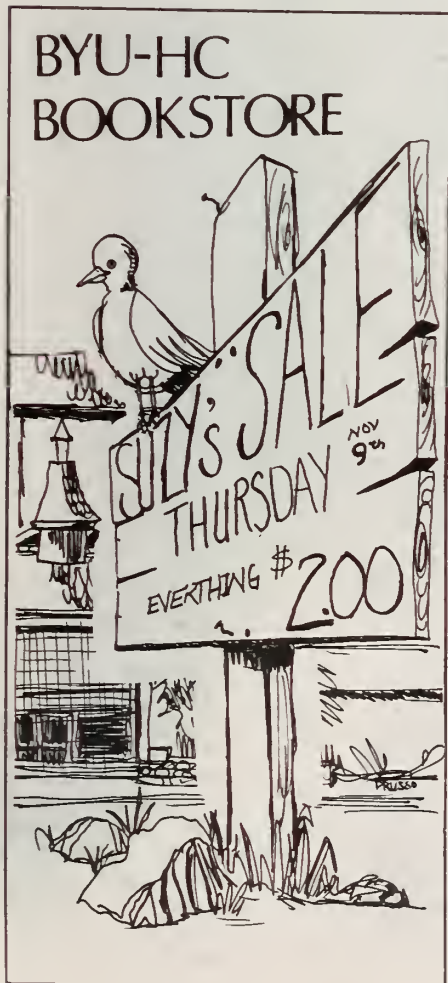 BYU-HC
BOOKSTORE
SULY'S "SALE
THURSDAY NOV 9th
EVERTHING $2.00
DRUSSO